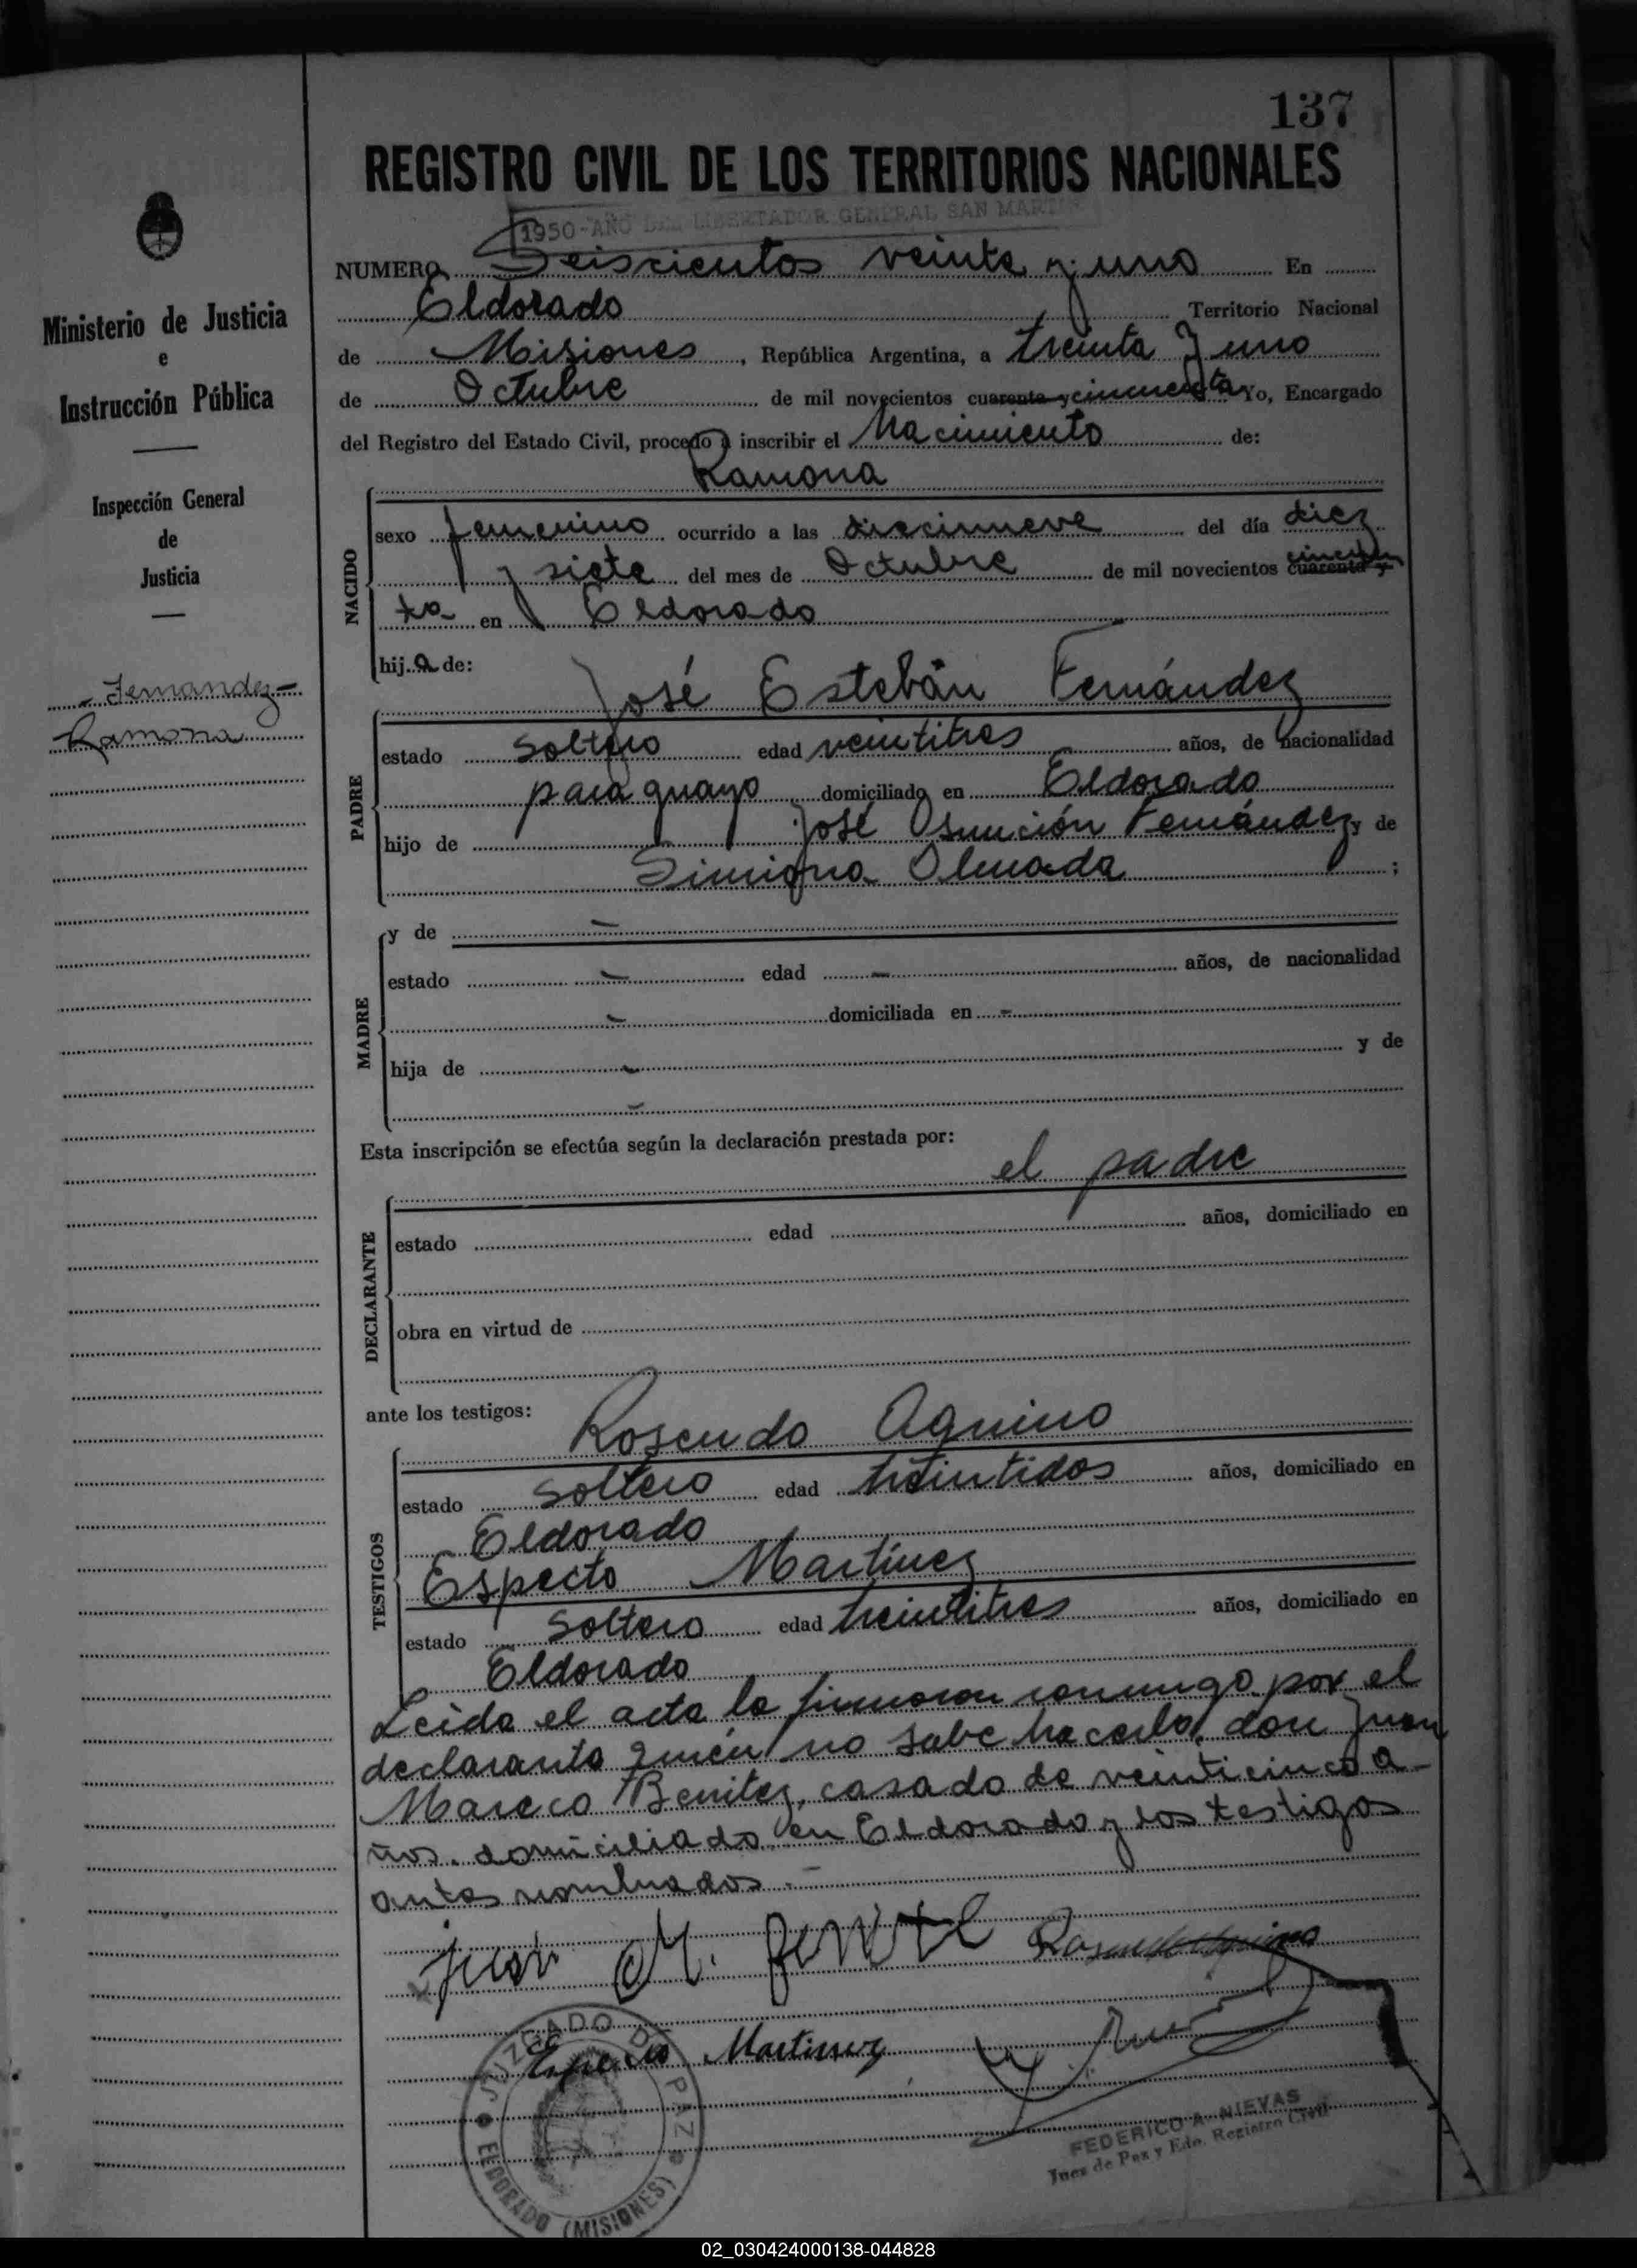 137
REGISTRO CIVIL DE LOS TERRITORIOS NACIONALES
1950-AÑO DEL LIBERTADOR GENERAL SAN MARTIN
NUMERO Seiscientos veinte y uno En
Eldorado Territorio Nacional
de Misiones, República Argentina, a treinta y uno
de Octubre de mil novecientos cuarenta y cincuenta Yo, Encargado
del Registro del Estado Civil, procedo a inscribir el Nacimiento de:
Ramona
NACIDO
sexo femenino ocurrido a las diecinueve del día diez
y siete del mes de Octubre de mil novecientos cuarenta y cincuen
ta en Eldorado
hija de:
José Estebán Fernández
PADRE
estado soltero edad veintitres años, de nacionalidad
paraguayo domiciliado en Eldorado
hijo de José Osunción Fernández y de
Olmada ;
MADRE
y de –
estado – edad – años, de nacionalidad
– domiciliada en –
hija de – y de
–
Esta inscripción se efectúa según la declaración prestada por:
el padre
DECLARANTE
estado edad años, domiciliado en
obra en virtud de
ante los testigos:
Rosendo Aquino
TESTIGOS
estado soltero edad treintidos años, domiciliado en
Eldorado
Especto Martínez
estado soltero edad treintitres años, domiciliado en
Eldorado
Leida el acta la firmaron conmigo por el
declarante quién no sabe hacerlo, don Juan
Mareco Benitez, casado de veinticinco a-
ños. domiciliado en Eldorado y los testigos
antes nombrados.–
Juan M. Benitez Rosendo Aquino
Especto Martinez
JUZGADO DE PAZ
ELDORADO (MISIONES)
FEDERICO A. NIEVAS
Juez de Paz y Edo. Registro Civil
Ministerio de Justicia
e
Instrucción Pública
Inspección General
de
Justicia
- Fernandez -
Ramona
02_030424000138-044828